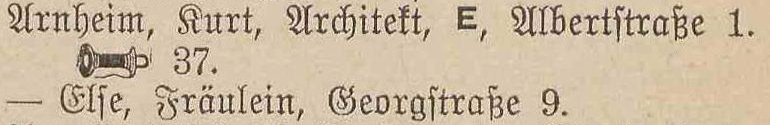 Arnheim, Kurt, Architekt, E, Albertſtraße 1.
37.
— Elſe, Fräulein, Georgſtraße 9.